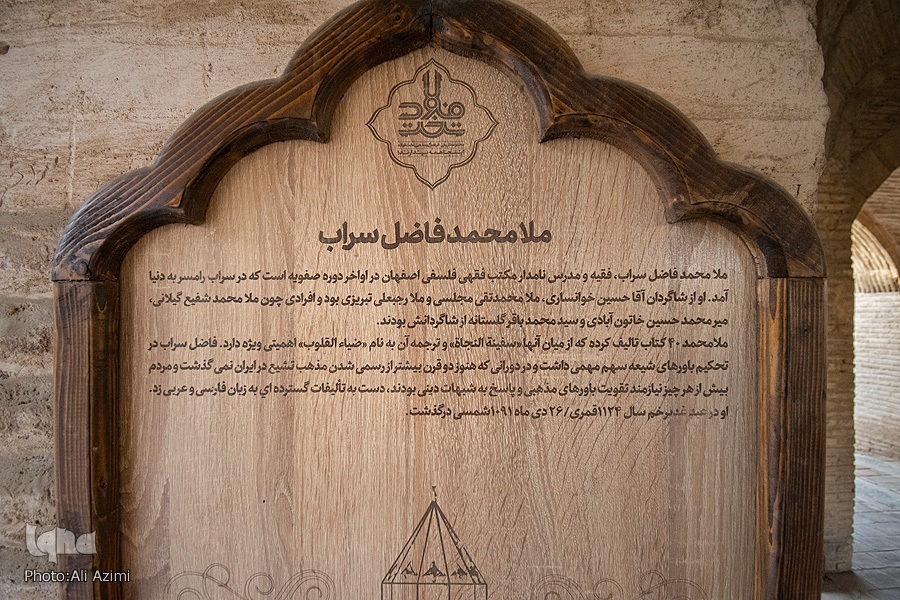 تخت فولاد
ملا محمد فاضل سراب
ملا محمد فاضل سراب، فقیه و مدرس نامدار مکتب فقهی فلسفی اصفهان در اواخر دوره صفویه است که در سراب رامسر به دنیا
آمد. او از شاگردان آقا حسین خوانساری، ملا محمدتقی مجلسی و ملا رجبعلی تبریزی بود و افرادی چون ملا محمد شفیع گیلانی،
میر محمد حسین خاتون آبادی و سید محمد باقر گلستانه از شاگردانش بودند.
ملامحمد ۴۰ کتاب تالیف کرده که از میان آنها «سفینة النجاة» و ترجمه آن به نام «ضیاء القلوب» اهمیتی ویژه دارد. فاضل سراب در
تحکیم باورهای شیعه سهم مهمی داشت و در دورانی که هنوز دو قرن بیشتر از رسمی شدن مذهب تشیع در ایران نمی گذشت و مردم
بیش از هر چیز نیازمند تقویت باورهای مذهبی و پاسخ به شبهات دینی بودند، دست به تألیفات گسترده ای به زبان فارسی و عربی زد.
او در عید غدیرخم سال ۱۱۲۴ قمری/ ۲۶ دی ماه ۱۰۹۱ شمسی درگذشت.
iqna
Photo:Ali Azimi